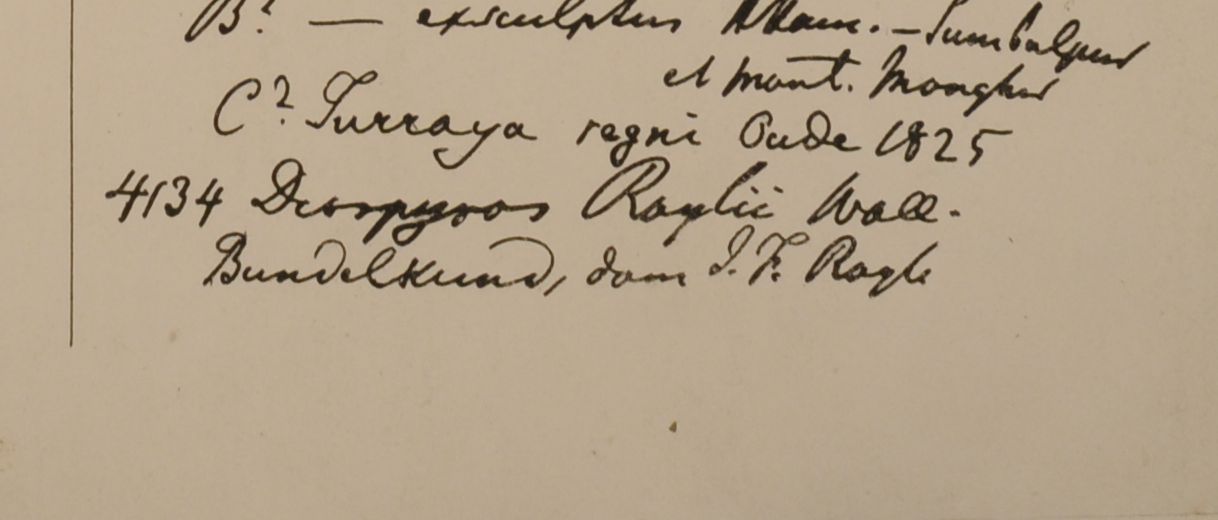 B? — exsculptus Ham. – Sumbulpur
et mont. Monghir
C? Turraya regni Oude 1825
4134 Diospyros Roylii Wall.
Bundelkund, dom J. F. Royle